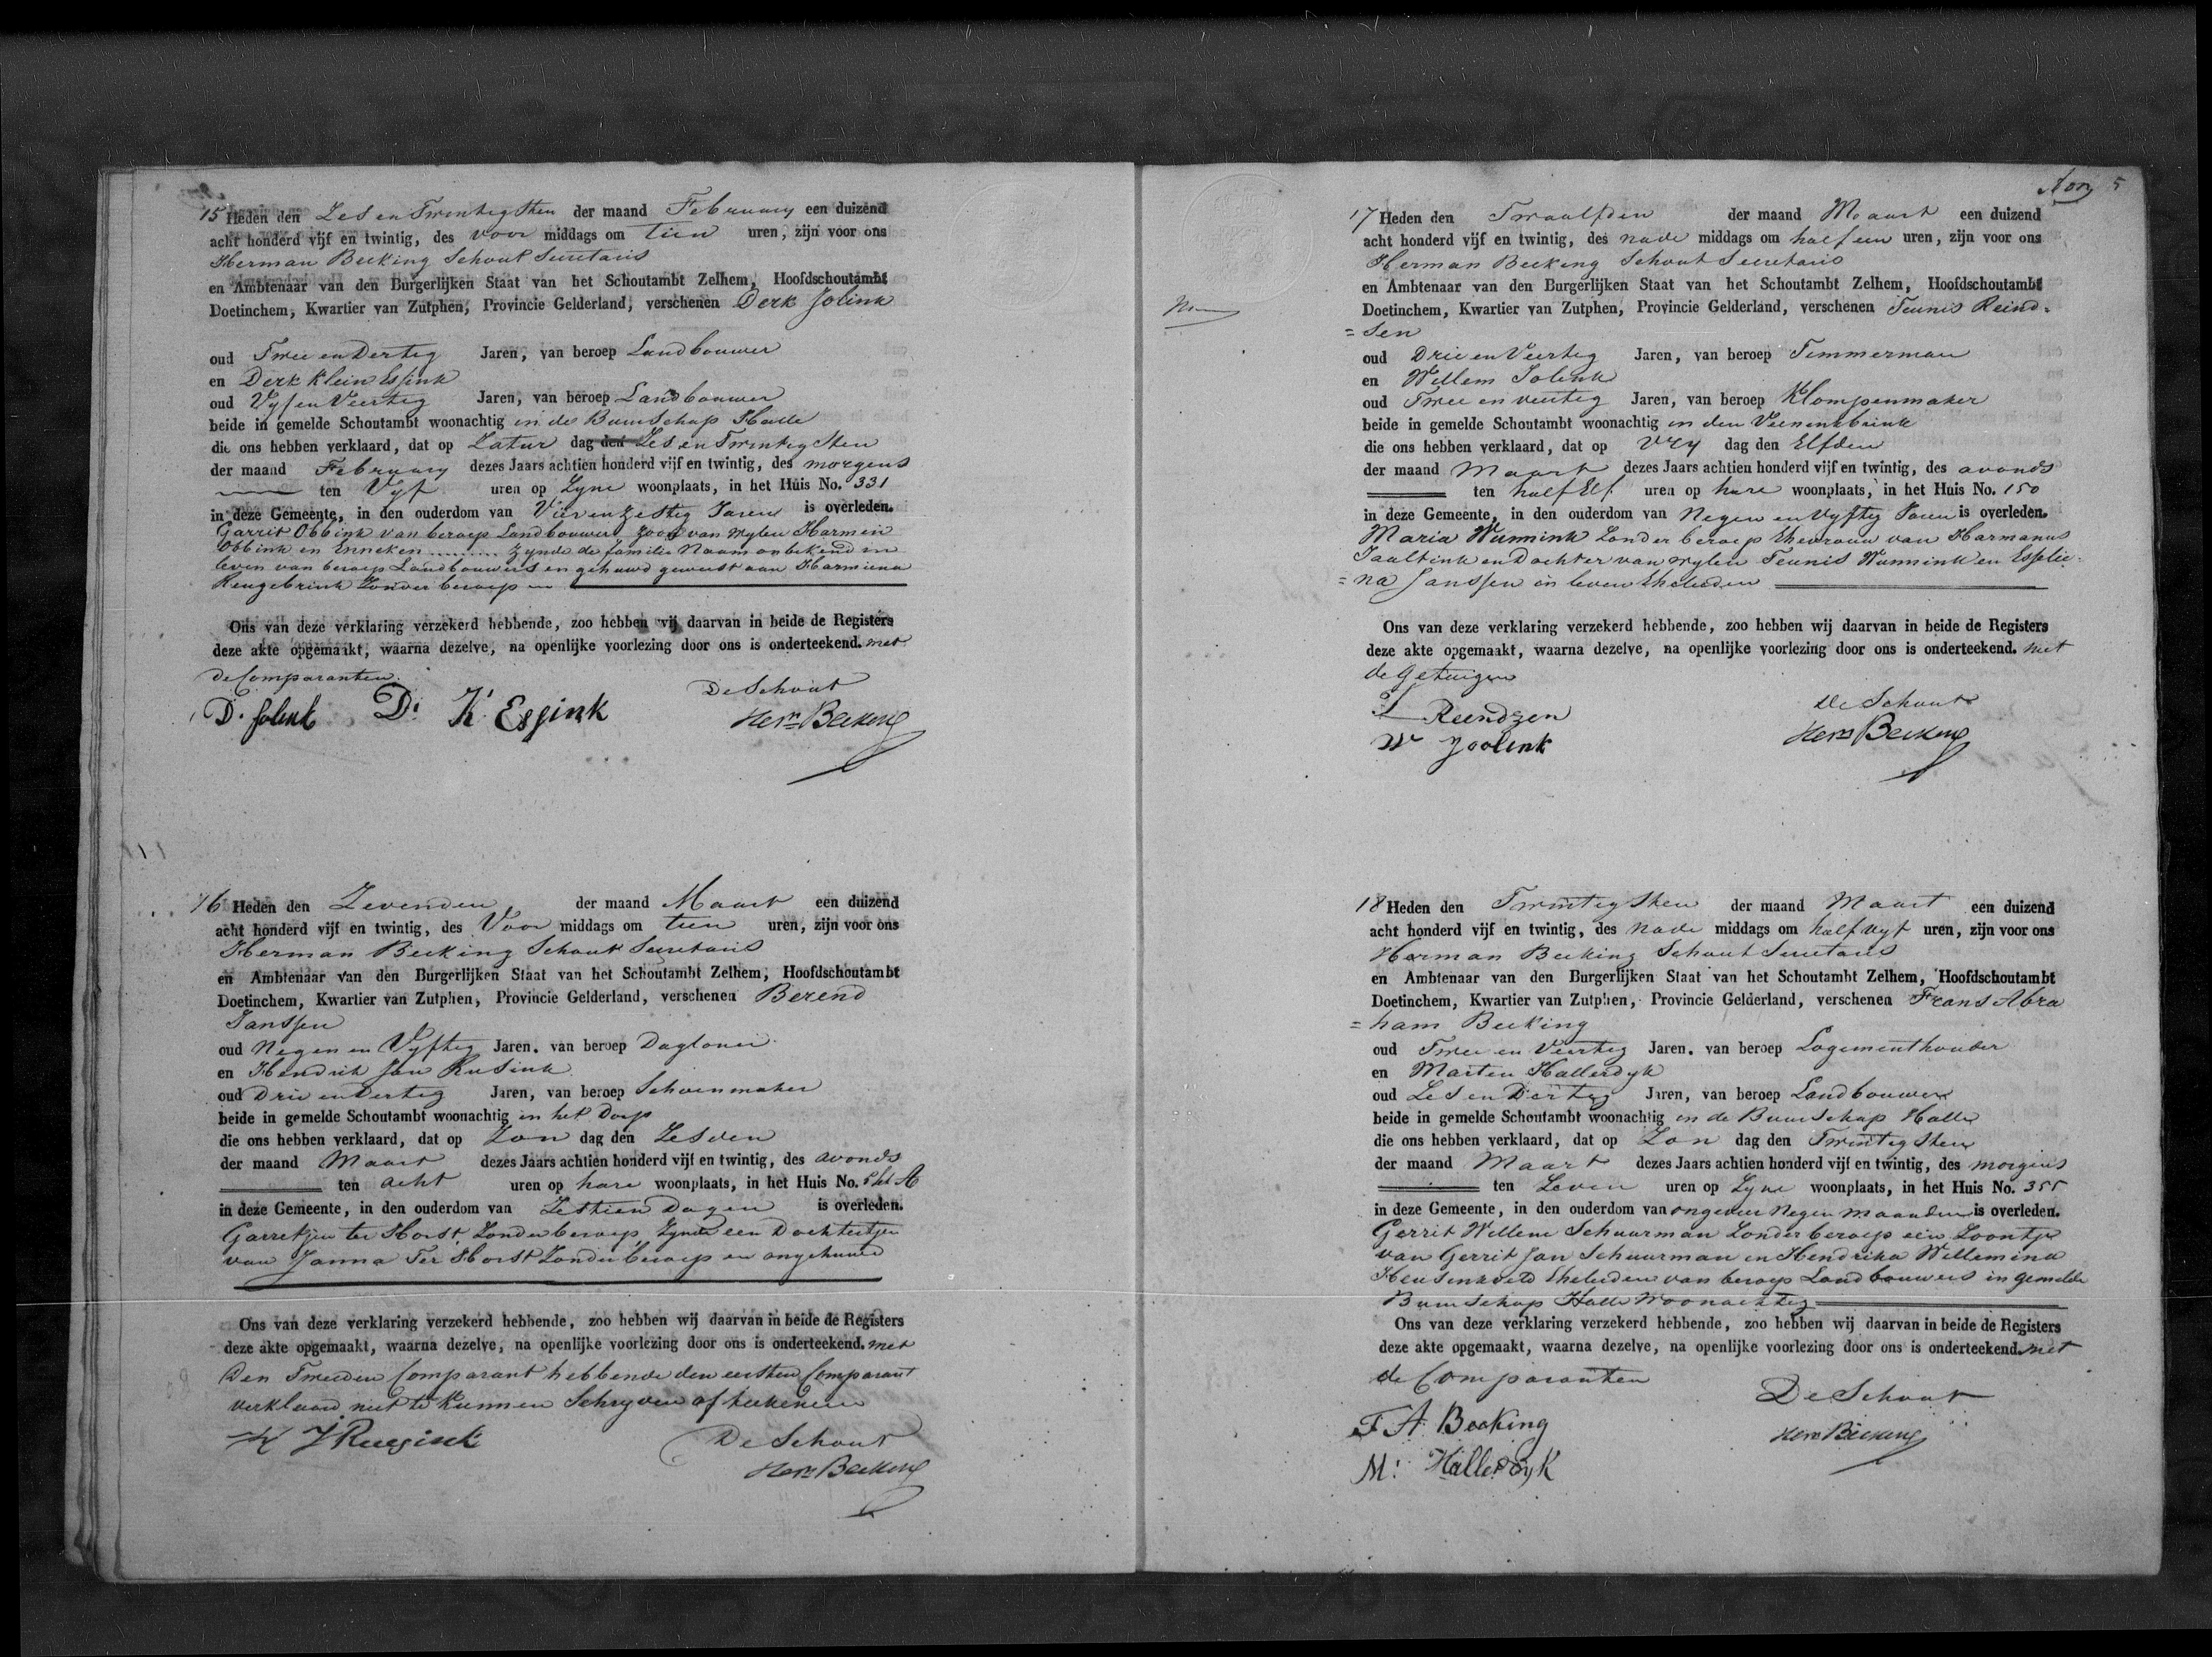 15 Heden den Zes en Twintigsten der maand February een duizend
acht honderd vijf en twintig, des voor middags om tien uren, zijn voor ons
Herman Becking Schout Secretaris
en Ambtenaar van den Burgerlijken Staat van het Schoutambt Zelhem, Hoofdschoutambt
Doetinchem, Kwartier van Zutphen, Provincie Gelderland, verschenen Derk Jolink
oud Twee en Dertig Jaren, van beroep Landbouwer
en Derk Klein Essink
oud Vyf en Veertig Jaren, van beroep Landbouwer
beide in gemelde Schoutambt woonachtig in de Buurschap Halle
die ons hebben verklaard, dat op Zatur dag den Zes en Twintigsten
der maand February dezes Jaars achtien honderd vijf en twintig, des morgens
ten Vyf uren op Zyne woonplaats, in het Huis No. 331
in deze Gemeente, in den ouderdom van Vier en Zestig Jaren is overleden.
Garrit Obbink van beroep Landbouwer zoon van wylen Harmen
Obbink en Enneken ......... zynde de familie Naam onbekend in
leven van beroep Landbouwers en gehuwd geweest aan Harmina
Rengebrink Zonder beroep
Ons van deze verklaring verzekerd hebbende, zoo hebben wij daarvan in beide de Registers
deze akte opgemaakt, waarna dezelve, na openlijke voorlezing door ons is onderteekend. met
de Comparanten.
De Schout
D. Jolink D: K Essink Herm Becking
16 Heden den Zevenden der maand Maart een duizend
acht honderd vijf en twintig, des Voor middags om tien uren, zijn voor ons
Herman Becking Schout Secretaris
en Ambtenaar van den Burgerlijken Staat van het Schoutambt Zelhem, Hoofdschoutambt
Doetinchem, Kwartier van Zutphen, Provincie Gelderland, verschenen Berend
Janssen
oud Negen en Vyftig Jaren. van beroep Daglooner
en Hendrik Jan Rusink
oud Drie en Dertig Jaren, van beroep Schoenmaker
beide in gemelde Schoutambt woonachtig in het Dorp
die ons hebben verklaard, dat op Zon dag den Zesden
der maand Maart dezes Jaars achtien honderd vijf en twintig, des avonds
ten acht uren op hare woonplaats, in het Huis No.
in deze Gemeente, in den ouderdom van Zestien Dagen is overleden.
Garretjen ter Horst Zonder beroep, Zynde een Dochtertjen
van Janna Ter Horst Zonder beroep en ongehuwd
Ons van deze verklaring verzekerd hebbende, zoo hebben wij daarvan in beide de Registers
deze akte opgemaakt, waarna dezelve, na openlijke voorlezing door ons is onderteekend. met
Den Tweeden Comparant hebbende den eersten Comparant
verklaard niet te kunnen Schryven of teekenen
H J Ruesink De Schout
Herm Becking
5
17 Heden den Twaalfden der maand Maart een duizend
acht honderd vijf en twintig, des nade middags om half een uren, zijn voor ons
Herman Becking Schout Secretaris
en Ambtenaar van den Burgerlijken Staat van het Schoutambt Zelhem, Hoofdschoutambt
Doetinchem, Kwartier van Zutphen, Provincie Gelderland, verschenen Teunis Reind-
=sen
oud Drie en Veertig Jaren, van beroep Timmerman
en Willem Jolink
oud Twee en veertig Jaren, van beroep Klompenmaker
beide in gemelde Schoutambt woonachtig in den Veenenkbrink
die ons hebben verklaard, dat op Vry dag den Elfden
der maand Maart dezes Jaars achtien honderd vijf en twintig, des avonds
ten half Elf uren op hare woonplaats, in het Huis No. 150
in deze Gemeente, in den ouderdom van Negen en Vyftig Jaren is overleden.
Maria Wunnink Zonder beroep Ehevrouw van Harmanus
Jaaltink en Dochter van wylen Teunis Wunnink en Esselie-
=na Janssen in leven Ehelieden
Ons van deze verklaring verzekerd hebbende, zoo hebben wij daarvan in beide de Registers
deze akte opgemaakt, waarna dezelve, na openlijke voorlezing door ons is onderteekend. met
de Getuigen
De Schout
T Reendzen
W Joolink Herm Becking
18 Heden den Twintigsten der maand Maart een duizend
acht honderd vijf en twintig, des nade middags om half vyf uren, zijn voor ons
Herman Becking Schout Secretaris
en Ambtenaar van den Burgerlijken Staat van het Schoutambt Zelhem, Hoofdschoutambt
Doetinchem, Kwartier van Zutphen, Provincie Gelderland, verschenen Frans Abra
=ham Becking
oud Twee en Veertig Jaren. van beroep Logementhouder
en Marten Hallerdyk
oud Zes en Dertig Jaren, van beroep Landbouwer
beide in gemelde Schoutambt woonachtig in de Buurschap Halle
die ons hebben verklaard, dat op Zon dag den Twintigsten
der maand Maart dezes Jaars achtien honderd vijf en twintig, des morgens
ten Zeven uren op Zyne woonplaats, in het Huis No. 355
in deze Gemeente, in den ouderdom van ongeveer Negen maanden is overleden.
Gerrit Willem Schuurman Zonder beroep een Zoontje
van Gerrit Jan Schuurman en Hendrika Willemina
Heusinkveld Ehelieden van beroep Landbouwers in gemelde
Buurschap Halle Woonachtig
Ons van deze verklaring verzekerd hebbende, zoo hebben wij daarvan in beide de Registers
deze akte opgemaakt, waarna dezelve, na openlijke voorlezing door ons is onderteekend. met
de Comparanten
De Schout
F A Becking Herm Becking
M: Hallerdyk